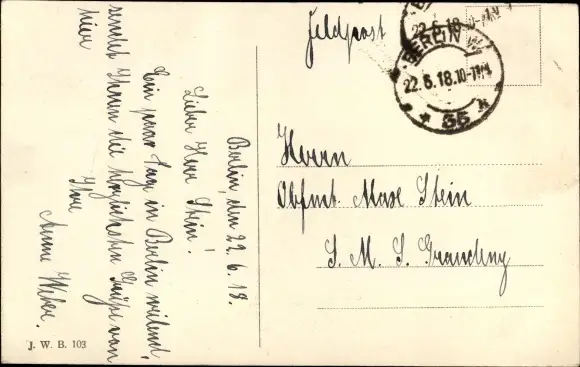 Berlin, den 22.6.18.
Lieber Herr Stein!
Ein paar Tage in Berlin weilend,
sendet Ihnen die herzlichsten Grüße von
hier
Ihre
Anne Weber.
J. W. B. 103
Feldpost
22.6.18.10-11V
BERLIN W
22.6.18.10-11V
* 35 k
Herrn
Obfmt. Max Stein
S. M. S. Graudenz